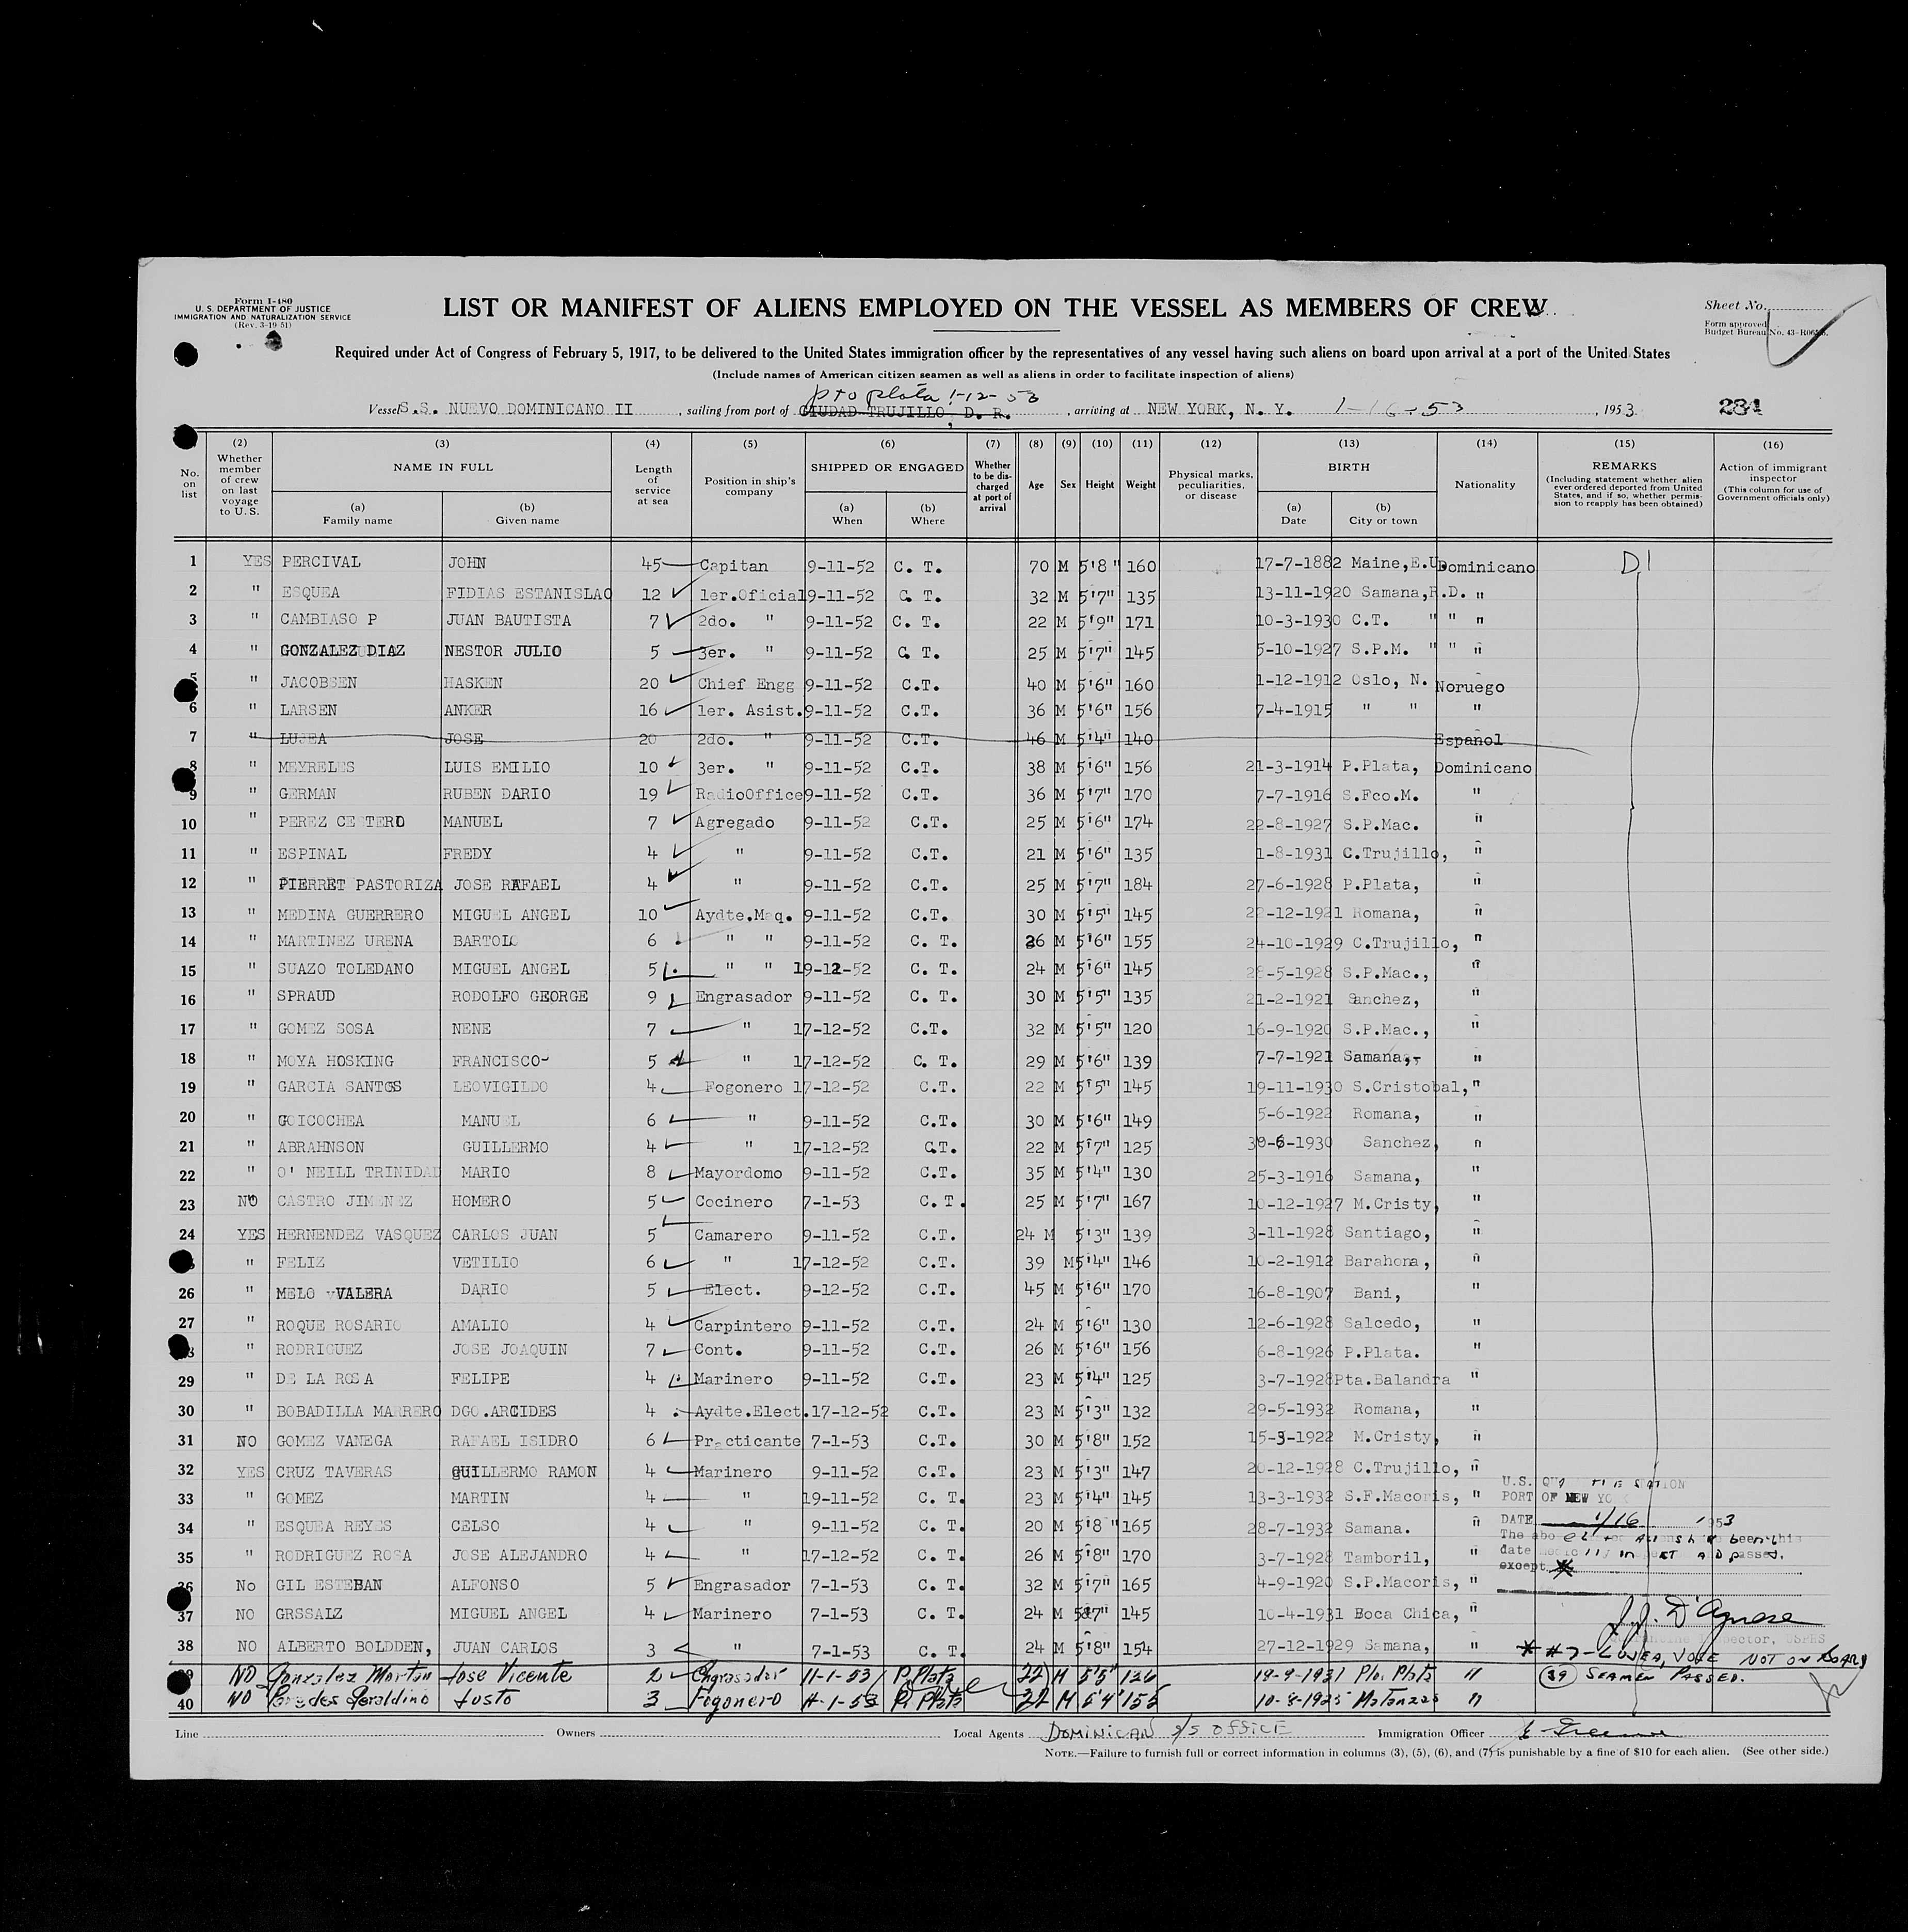 Form I-480
U. S. DEPARTMENT OF JUSTICE
IMMIGRATION AND NATURALIZATION SERVICE
(Rev. 3-19-51)
LIST OR MANIFEST OF ALIENS EMPLOYED ON THE VESSEL AS MEMBERS OF CREW
Sheet No.
Form approved
Budget Bureau No. 43-
Required under Act of Congress of February 5, 1917, to be delivered to the United States immigration officer by the representatives of any vessel having such aliens on board upon arrival at a port of the United States
(Include names of American citizen seamen as well as aliens in order to facilitate inspection of aliens)
pto plata 1-12-53
Vessel S.S. NUEVO DOMINICANO II, sailing from port of CIUDAD TRUJILLO, D. R., arriving at NEW YORK, N. Y. 1-16-53, 1953 284
(2) (3) (4) (5) (6) (7) (8) (9) (10) (11) (12) (13) (14) (15) (16)
No. on list
Whether member of crew on last voyage to U. S.
NAME IN FULL
(a) Family name
(b) Given name
Length of service at sea
Position in ship's company
SHIPPED OR ENGAGED
(a) When
(b) Where
Whether to be discharged at port of arrival
Age
Sex
Height
Weight
Physical marks, peculiarities, or disease
BIRTH
(a) Date
(b) City or town
Nationality
REMARKS
(Including statement whether alien ever ordered deported from United States, and if so, whether permission to reapply has been obtained)
Action of immigrant inspector
(This column for use of Government officials only)
1 YES PERCIVAL JOHN 45 Capitan 9-11-52 C. T. 70 M 5'8" 160 17-7-1882 Maine,E.U. Dominicano D1
2 " ESQUEA FIDIAS ESTANISLAO 12 1er.Oficial 9-11-52 C. T. 32 M 5'7" 135 13-11-1920 Samana,R.D. "
3 " CAMBIASO P JUAN BAUTISTA 7 2do. " 9-11-52 C. T. 22 M 5'9" 171 10-3-1930 C.T. " " "
4 " GONZALEZ DIAZ NESTOR JULIO 5 3er. " 9-11-52 C. T. 25 M 5'7" 145 5-10-1927 S.P.M. " " "
5 " JACOBSEN HASKEN 20 Chief Engg 9-11-52 C.T. 40 M 5'6" 160 1-12-1912 Oslo, N. Noruego
6 " LARSEN ANKER 16 1er. Asist. 9-11-52 C.T. 36 M 5'6" 156 7-4-1915 " " "
7 " LUJEA JOSE 20 2do. " 9-11-52 C.T. 46 M 5'4" 140 Español
8 " MEYRELES LUIS EMILIO 10 3er. " 9-11-52 C.T. 38 M 5'6" 156 21-3-1914 P.Plata, Dominicano
9 " GERMAN RUBEN DARIO 19 RadioOffice 9-11-52 C.T. 36 M 5'7" 170 7-7-1916 S.Fco.M. "
10 " PEREZ CESTERO MANUEL 7 Agregado 9-11-52 C.T. 25 M 5'6" 174 22-8-1927 S.P.Mac. "
11 " ESPINAL FREDY 4 " 9-11-52 C.T. 21 M 5'6" 135 1-8-1931 C.Trujillo, "
12 " PIERRET PASTORIZA JOSE RAFAEL 4 " 9-11-52 C.T. 25 M 5'7" 184 27-6-1928 P.Plata, "
13 " MEDINA GUERRERO MIGUEL ANGEL 10 Aydte.Maq. 9-11-52 C.T. 30 M 5'5" 145 22-12-1921 Romana, "
14 " MARTINEZ URENA BARTOLO 6 " " 9-11-52 C. T. 26 M 5'6" 155 24-10-1929 C.Trujillo, "
15 " SUAZO TOLEDANO MIGUEL ANGEL 5 " " 19-12-52 C. T. 24 M 5'6" 145 28-5-1928 S.P.Mac., "
16 " SPRAUD RODOLFO GEORGE 9 Engrasador 9-11-52 C. T. 30 M 5'5" 135 21-2-1921 Sanchez, "
17 " GOMEZ SOSA NENE 7 " 17-12-52 C.T. 32 M 5'5" 120 16-9-1920 S.P.Mac., "
18 " MOYA HOSKING FRANCISCO 5 " 17-12-52 C. T. 29 M 5'6" 139 7-7-1921 Samana, "
19 " GARCIA SANTOS LEOVIGILDO 4 Fogonero 17-12-52 C.T. 22 M 5'5" 145 19-11-1930 S.Cristobal, "
20 " GOICOCHEA MANUEL 6 " 9-11-52 C.T. 30 M 5'6" 149 5-6-1922 Romana, "
21 " ABRAHNSON GUILLERMO 4 " 17-12-52 C.T. 22 M 5'7" 125 30-6-1930 Sanchez, "
22 " O' NEILL TRINIDAD MARIO 8 Mayordomo 9-11-52 C.T. 35 M 5'4" 130 25-3-1916 Samana, "
23 NO CASTRO JIMENEZ HOMERO 5 Cocinero 7-1-53 C. T. 25 M 5'7" 167 10-12-1927 M.Cristy, "
24 YES HERNENDEZ VASQUEZ CARLOS JUAN 5 Camarero 9-11-52 C.T. 24 M 5'3" 139 3-11-1928 Santiago, "
" FELIZ VETILIO 6 " 17-12-52 C.T. 39 M 5'4" 146 10-2-1912 Barahona, "
26 " MELO VALERA DARIO 5 Elect. 9-12-52 C.T. 45 M 5'6" 170 16-8-1907 Bani, "
27 " ROQUE ROSARIO AMALIO 4 Carpintero 9-11-52 C.T. 24 M 5'6" 130 12-6-1928 Salcedo, "
" RODRIGUEZ JOSE JOAQUIN 7 Cont. 9-11-52 C.T. 26 M 5'6" 156 6-8-1926 P.Plata. "
29 " DE LA ROSA FELIPE 4 Marinero 9-11-52 C.T. 23 M 5'4" 125 3-7-1928 Pta.Balandra "
30 " BOBADILLA MARRERO DGO.ARCIDES 4 Aydte.Elect. 17-12-52 C.T. 23 M 5'3" 132 29-5-1932 Romana, "
31 NO GOMEZ VANEGA RAFAEL ISIDRO 6 Practicante 7-1-53 C.T. 30 M 5'8" 152 15-3-1922 M.Cristy, "
32 YES CRUZ TAVERAS GUILLERMO RAMON 4 Marinero 9-11-52 C.T. 23 M 5'3" 147 20-12-1928 C.Trujillo, "
33 " GOMEZ MARTIN 4 " 19-11-52 C. T. 23 M 5'4" 145 13-3-1932 S.F.Macoris, "
34 " ESQUEA REYES CELSO 4 " 9-11-52 C. T. 20 M 5'8" 165 28-7-1932 Samana. "
35 " RODRIGUEZ ROSA JOSE ALEJANDRO 4 " 17-12-52 C. T. 26 M 5'8" 170 3-7-1928 Tamboril, "
36 No GIL ESTEBAN ALFONSO 5 Engrasador 7-1-53 C. T. 32 M 5'7" 165 4-9-1920 S.P.Macoris, "
37 NO GRSSALZ MIGUEL ANGEL 4 Marinero 7-1-53 C. T. 24 M 5'7" 145 10-4-1931 Boca Chica, "
38 NO ALBERTO BOLDDEN, JUAN CARLOS 3 " 7-1-53 C. T. 24 M 5'8" 154 27-12-1929 Samana, "
NO Gonzalez Martan Jose Vicente 2 Engrasador 11-1-53 P. Plata 22 M 5'5" 126 19-9-1931 Pto. Plata "
40 NO Paredes Geraldino Justo 3 Fogonero 11-1-53 P. Plata 27 M 5'4" 155 10-8-1925 Matanzas "
U.S. STATION
PORT OF NEW YORK
DATE 1/16 1953
The above been this
date passed.
except *
J. J. D'Agnese
Inspector, USPHS
* #7 - LUJEA, JOSE NOT ON BOARD
(39) SEAMEN PASSED.
Line Owners Local Agents DOMINICAN S/S OFFICE Immigration Officer
NOTE.—Failure to furnish full or correct information in columns (3), (5), (6), and (7) is punishable by a fine of $10 for each alien. (See other side.)